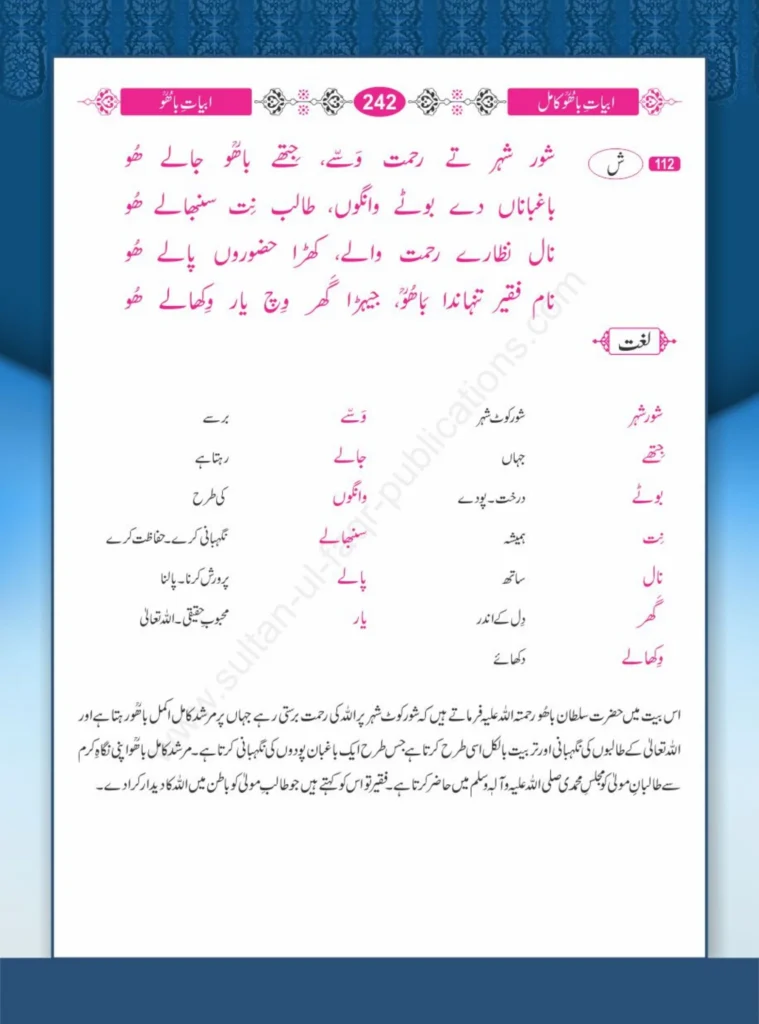 ابیاتِ باھُوؒ کامل 242 ابیاتِ باھُوؒ
112 ش
شور شہر تے رحمت وَسّے، جِتھے باھُوؒ جالے ھُو
باغباناں دے بوٹے وانگوں، طالب نِت سنبھالے ھُو
نال نظارے رحمت والے، کھڑا حضوروں پالے ھُو
نام فقیر تنہاندا بَاھُوؒ، جیہڑا گھَر وِچ یار وِکھالے ھُو
لغت
شور شہر شور کوٹ شہر وَسّے برسے
جِتھے جہاں جالے رہتا ہے
بوٹے درخت۔ پودے وانگوں کی طرح
نِت ہمیشہ سنبھالے نگہبانی کرے۔ حفاظت کرے
نال ساتھ پالے پرورش کرنا۔ پالنا
گھَر دِل کے اندر یار محبوبِ حقیقی۔ اللہ تعالیٰ
وِکھالے دکھائے
اس بیت میں حضرت سلطان باھُو رحمتہ اللہ علیہ فرماتے ہیں کہ شور کوٹ شہر پر اللہ کی رحمت برستی رہے جہاں پر مرشد کامل اکمل باھُوؒ رہتا ہے اور
اللہ تعالیٰ کے طالبوں کی نگہبانی اور تربیت بالکل اسی طرح کرتا ہے جس طرح ایک باغبان پودوں کی نگہبانی کرتا ہے۔ مرشد کامل باھُوؒ اپنی نگاہِ کرم
سے طالبانِ مولیٰ کو مجلسِ محمدی صلی اللہ علیہ وآلہٖ وسلم میں حاضر کرتا ہے۔ فقیر تو اس کو کہتے ہیں جو طالبِ مولیٰ کو باطن میں اللہ کا دیدار کرا دے۔
www.sultan-ul-faqr-publications.com